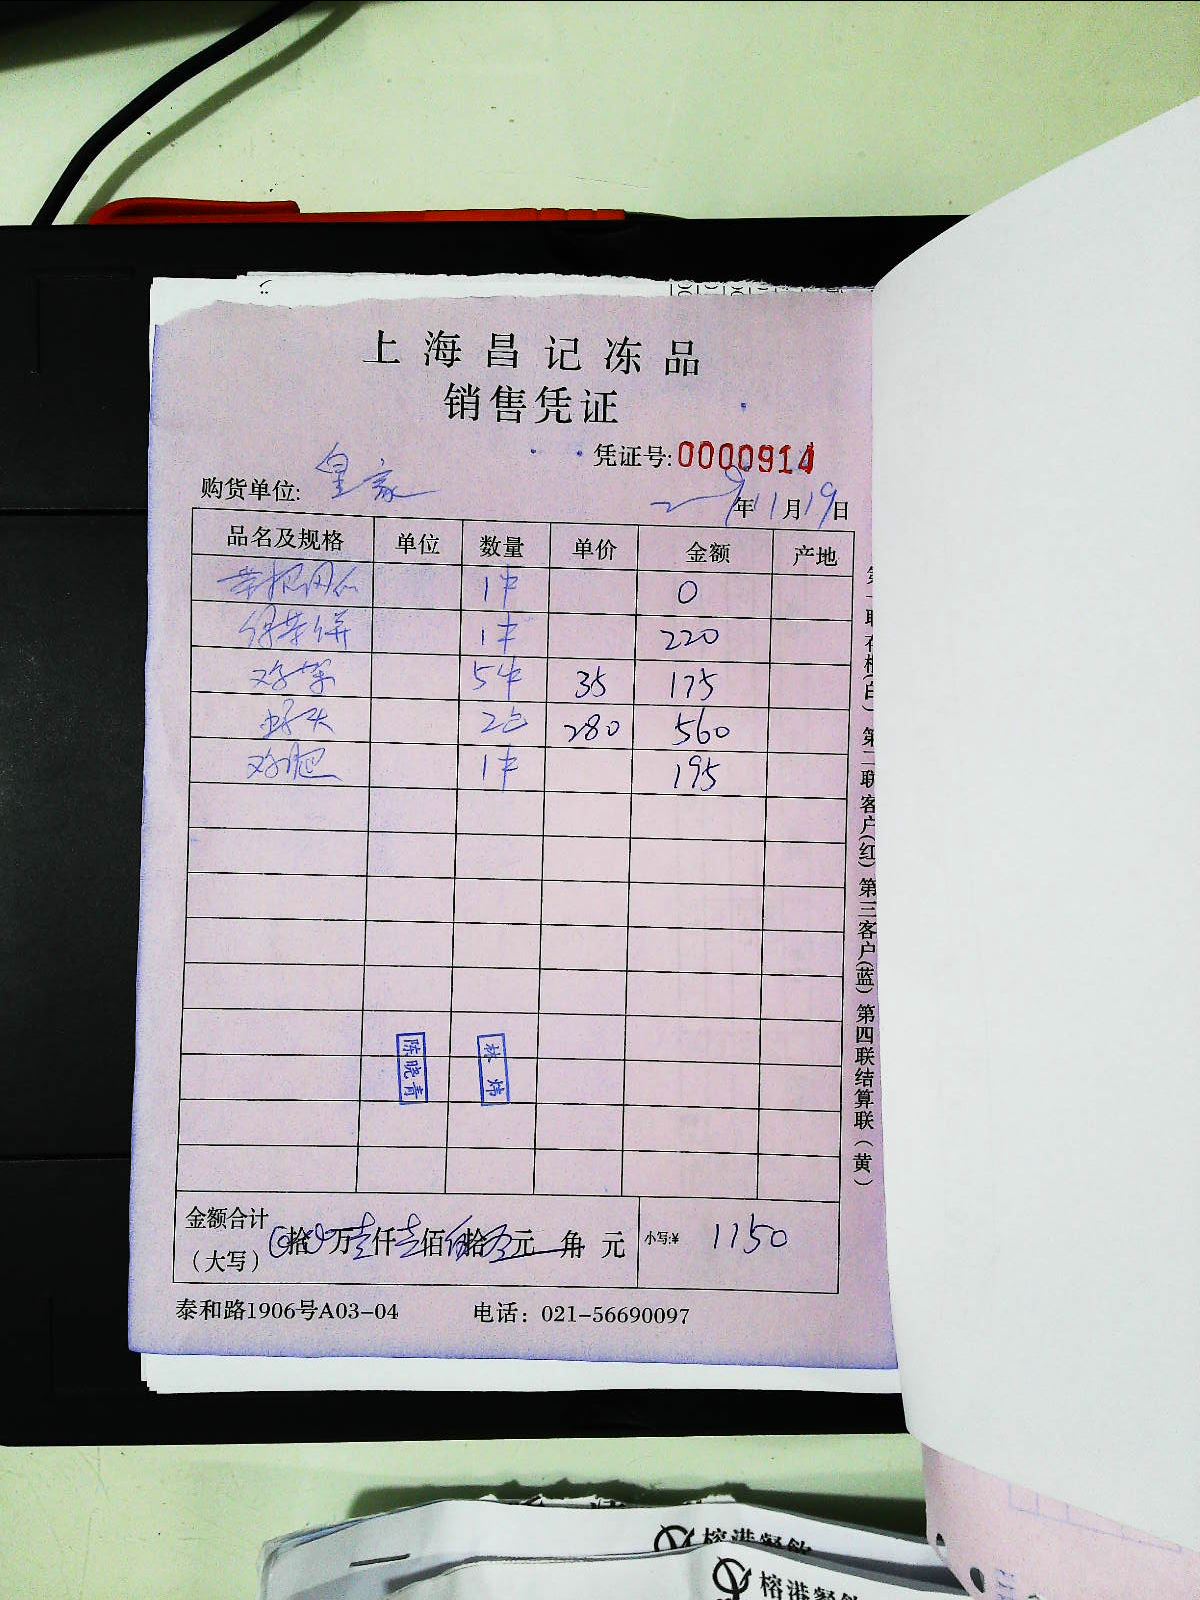 上海昌记冻品
销售凭证
凭证号:0000914
购货单位: 皇家
年11月19日
品名及规格 单位 数量 单价 金额 产地
1件 0
绿茶饼 1件 220
鸡架 5件 35 175
虾头 2包 280 560
鸡肥 1件 195
陈晓青 林炜
金额合计
(大写) 0拾0万壹仟壹佰伍拾元角元 小写:¥ 1150
泰和路1906号A03-04 电话: 021-56690097
第一联存根(白) 第二联客户(红) 第三客户(蓝) 第四联结算联(黄)
榕港餐飲
榕港餐飲